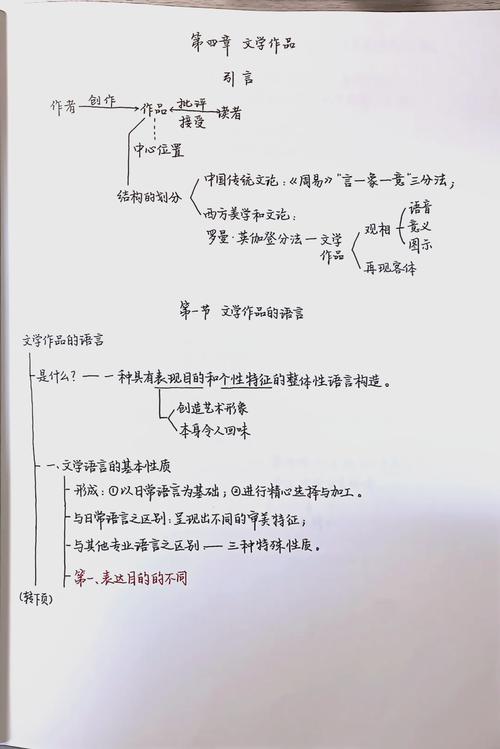 第四章 文学作品
引言
作者 创作 作品 批评 接受 读者
中心位置
结构的划分
中国传统文论:《周易》"言一象一意"三分法;
西方美学和文论:
罗曼·英伽登分法一文学作品
观相
语音
意义
图示
再现客体
第一节 文学作品的语言
文学作品的语言
是什么?——一种具有表现目的和个性特征的整体性语言构造。
创造艺术形象
本身令人回味
一、文学语言的基本性质
形成:①以日常语言为基础;②进行精心选择与加工。
与日常语言之区别:呈现出不同的审美特征;
与其他专业语言之区别——三种特殊性质。
第一、表达目的的不同
(转下页)